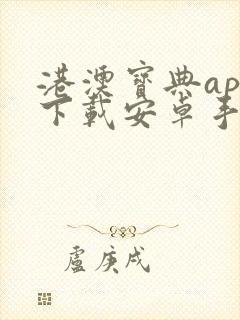 港澳寶典ap
下載安卓手
盧庚戌